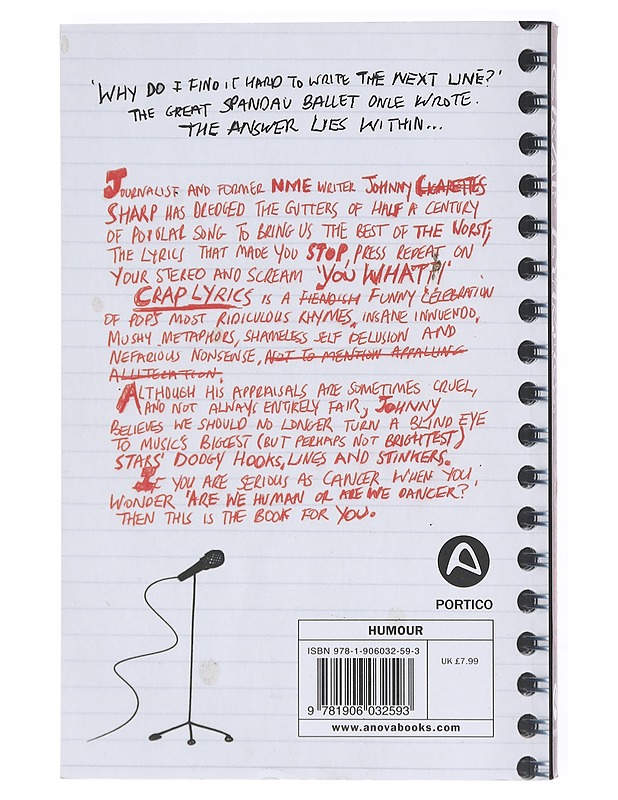 'WHY DO I FIND IT HARD TO WRITE THE NEXT LINE?'
THE GREAT SPANDAU BALLET ONCE WROTE.
THE ANSWER LIES WITHIN...
JOURNALIST AND FORMER NME WRITER JOHNNY CIGARETTES
SHARP HAS DREDGED THE GUTTERS OF HALF A CENTURY
OF POPULAR SONG TO BRING US THE BEST OF THE WORST;
THE LYRICS THAT MADE YOU STOP, PRESS REPEAT ON
YOUR STEREO AND SCREAM 'YOU WHAT?!'
CRAP LYRICS IS A FIENDISH FUNNY CELEBRATION
OF POP'S MOST RIDICULOUS RHYMES, INSANE INNUENDO,
MUSHY METAPHORS, SHAMELESS SELF DELUSION AND
NEFARIOUS NONSENSE, NOT TO MENTION APPALLING
ALLITERATION.
ALTHOUGH HIS APPRAISALS ARE SOMETIMES CRUEL,
AND NOT ALWAYS ENTIRELY FAIR, JOHNNY
BELIEVES WE SHOULD NO LONGER TURN A BLIND EYE
TO MUSIC'S BIGGEST (BUT PERHAPS NOT BRIGHTEST)
STARS' DODGY HOOKS, LINES AND STINKERS.
IF YOU ARE SERIOUS AS CANCER WHEN YOU
WONDER 'ARE WE HUMAN OR ARE WE DANCER?'
THEN THIS IS THE BOOK FOR YOU.
PORTICO
HUMOUR
ISBN 978-1-906032-59-3
UK £7.99
9 781906 032593
www.anovabooks.com